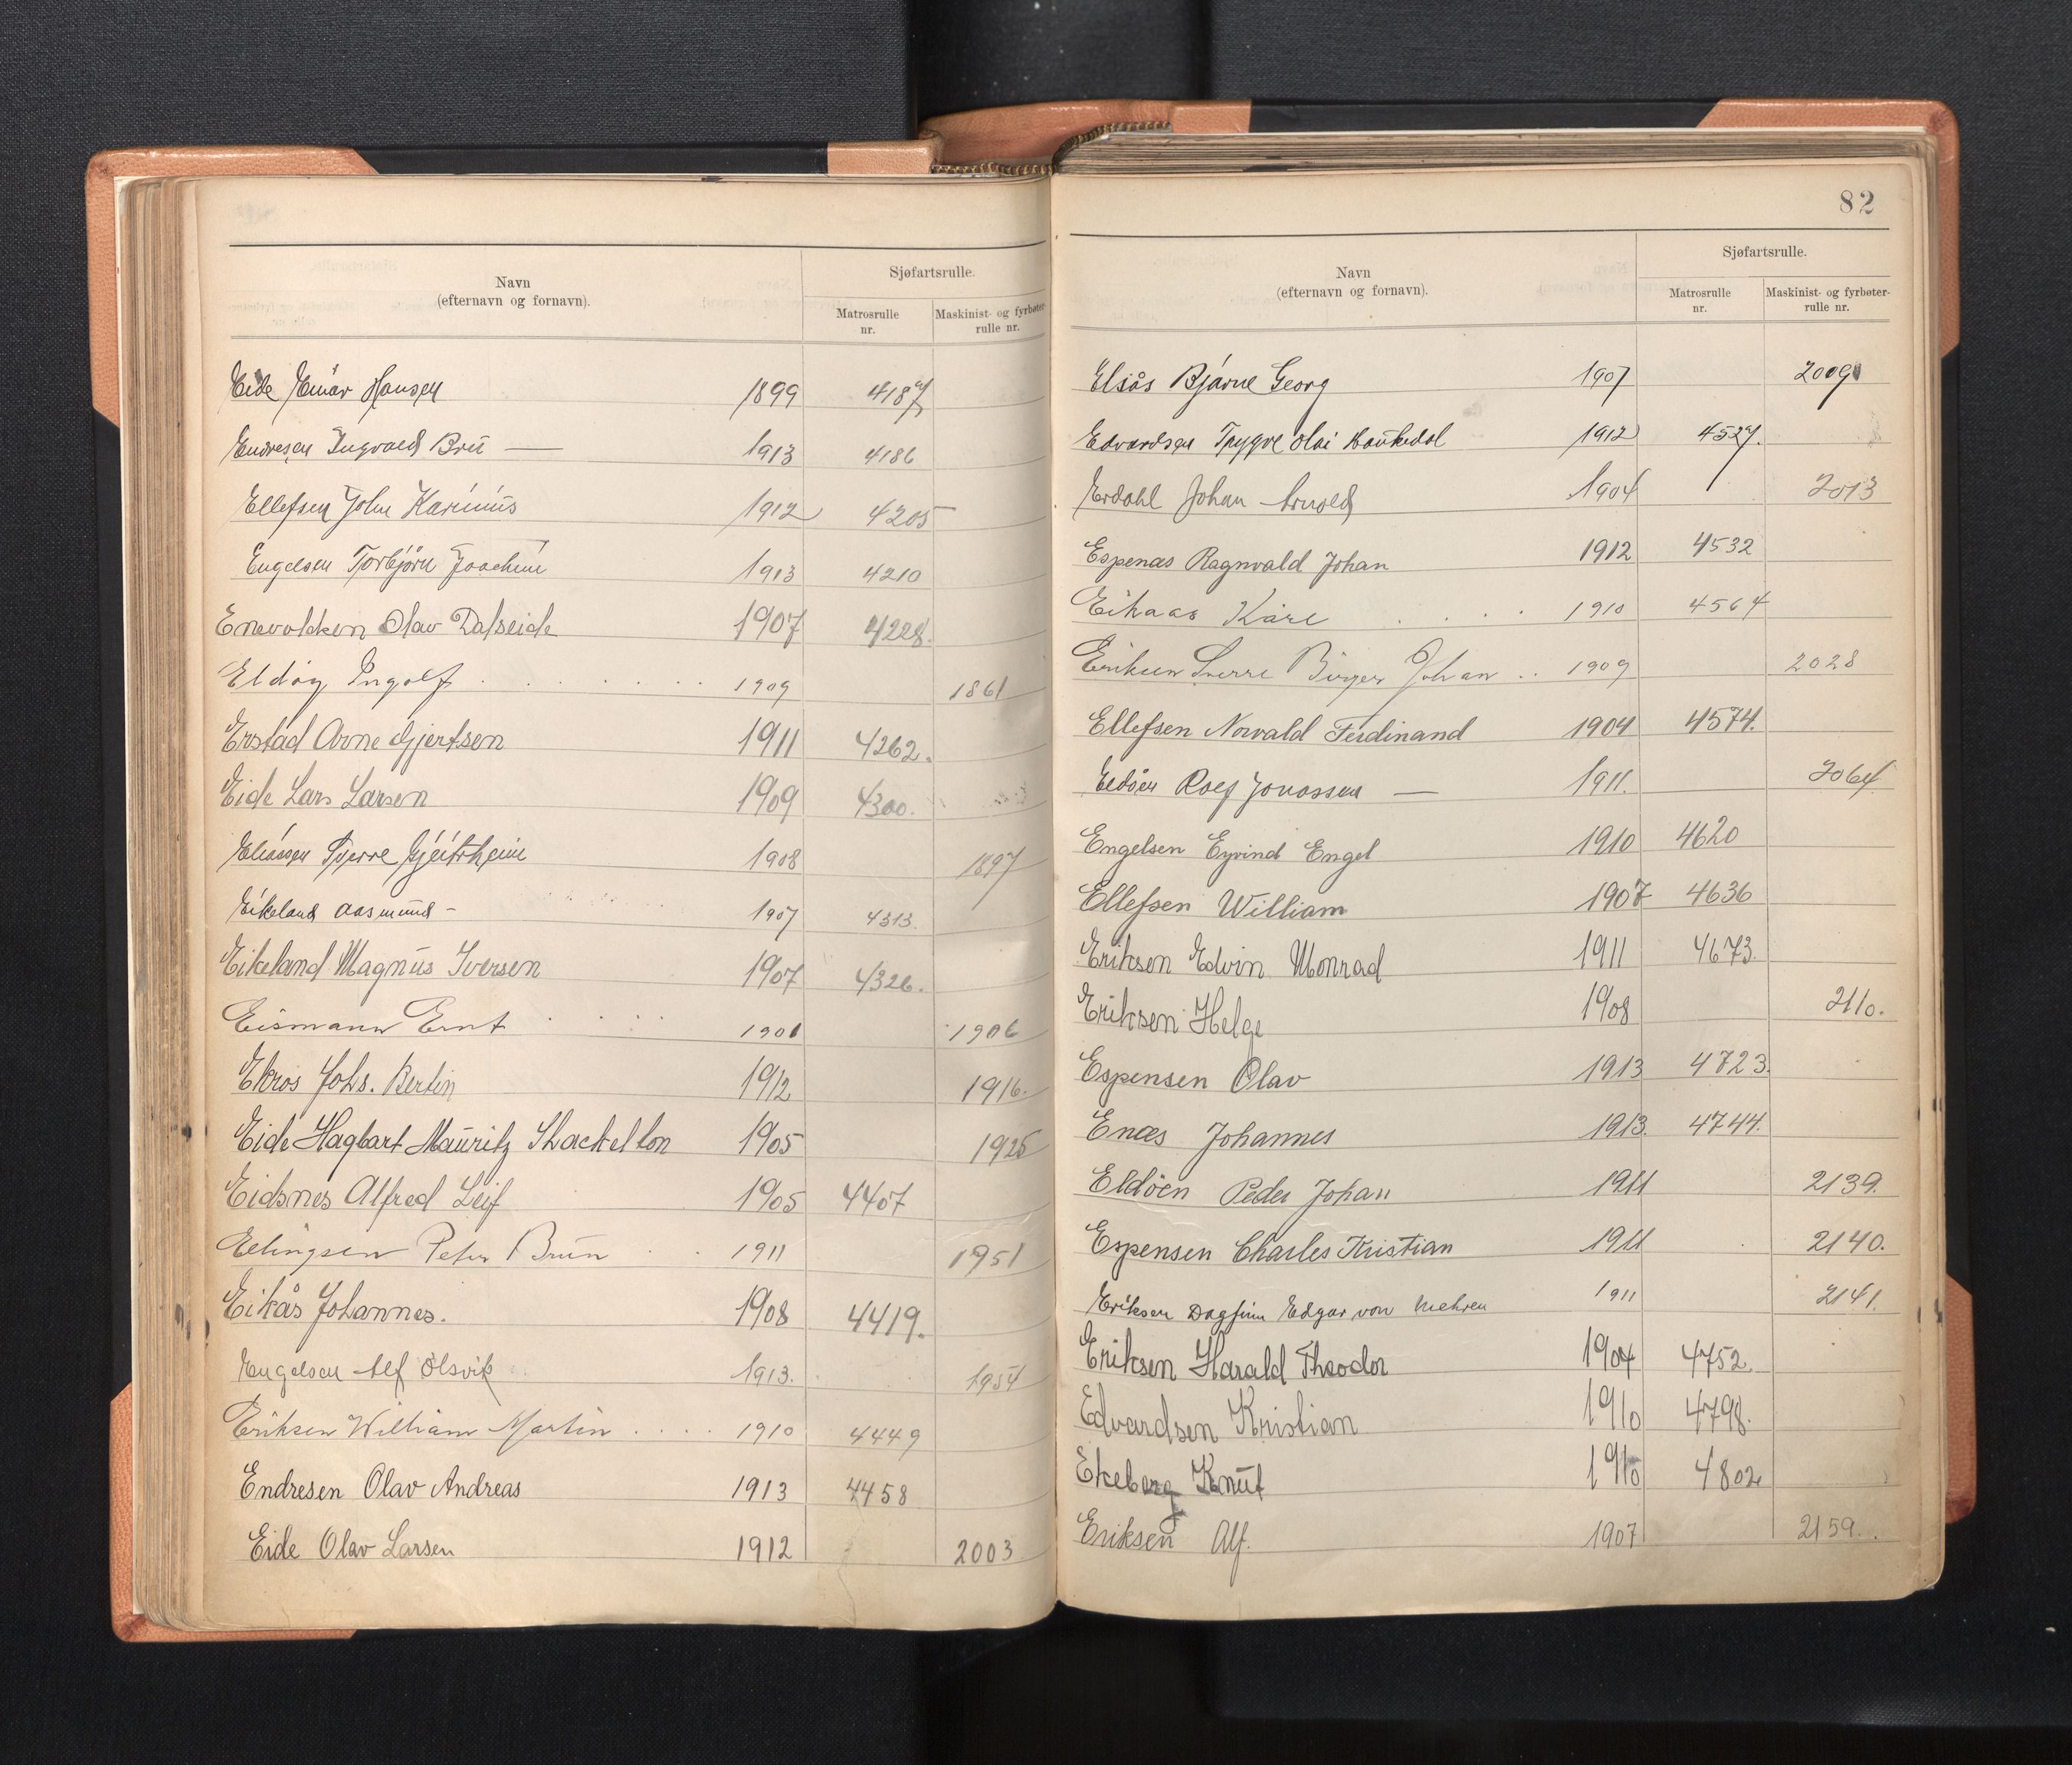 Navn
(efternavn og fornavn).
Sjøfartsrulle.
Matrosrulle nr.
Maskinist- og fyrbøter-rulle nr.
Eide Einar Hansen 1899 4187
Endresen Ingvald Bru — 1913 4186
Ellefsen John Karinius 1912 4205
Engelsen Torbjørn Joachim 1913 4210
Enevoldsen Olav Dalseide 1907 4228.
Eldøy Ingolf . . . . . . . 1909 1861
Erstad Arne Gjertsen 1911 4262.
Eide Lars Larsen 1909 4300.
Eliassen Sverre Gjeitrheim 1908 1897
Eikeland Aasmund - 1907 4313.
Eikeland Magnus Iversen 1907 4326.
Eismann Ernt 1906
Ekros Johs. Bertin 1912 1916.
Eide Hagbart Mauritz Shackelton 1905 1925
Eidsnes Alfred Leif 1905 4407
Ellingsen Peter Brun . . 1911 1951
Eikås Johannes. 1908 4419.
Engelsen Alf Olsvik 1913. 1954
Eriksen William Martin . . . . 1910 4449
Endresen Olav Andreas 1913 4458
Eide Olav Larsen 1912 2003
82
Navn
(efternavn og fornavn).
Sjøfartsrulle.
Matrosrulle nr.
Maskinist- og fyrbøter-rulle nr.
Elsås Bjarne Georg 1907 2009
Edvardsen Trygve Olai Haukedal 1912 4527.
Erdahl Johan Arnold 1904 2013
Espenæs Ragnvald Johan 1912 4532
Eikaas Kåre . . . 1910 4564
Eriksen Sverre Birger Johan . . 1909 2028
Ellefsen Norvald Ferdinand 1904 4574.
Eldøen Rolf Jonassen — 1911. 2064
Engelsen Eyvind Engel 1910 4620
Ellefsen William 1907 4636
Eriksen Edvin Monrad 1911 4673.
Eriksen Helge 1908 2110.
Espensen Olav 1913 4723.
Enæs Johannes 1913. 4744.
Eldöen Peder Johan 1911 2139.
Espensen Charles Kristian 1911 2140.
Eriksen Dagfinn Edgar von Mehren 1911 2141.
Eriksen Harald Theodor 1904 4752.
Edvardsen Kristian 1910 4798.
Ekeberg Knut 1910 4802
Eriksen Alf. 1907 2159.